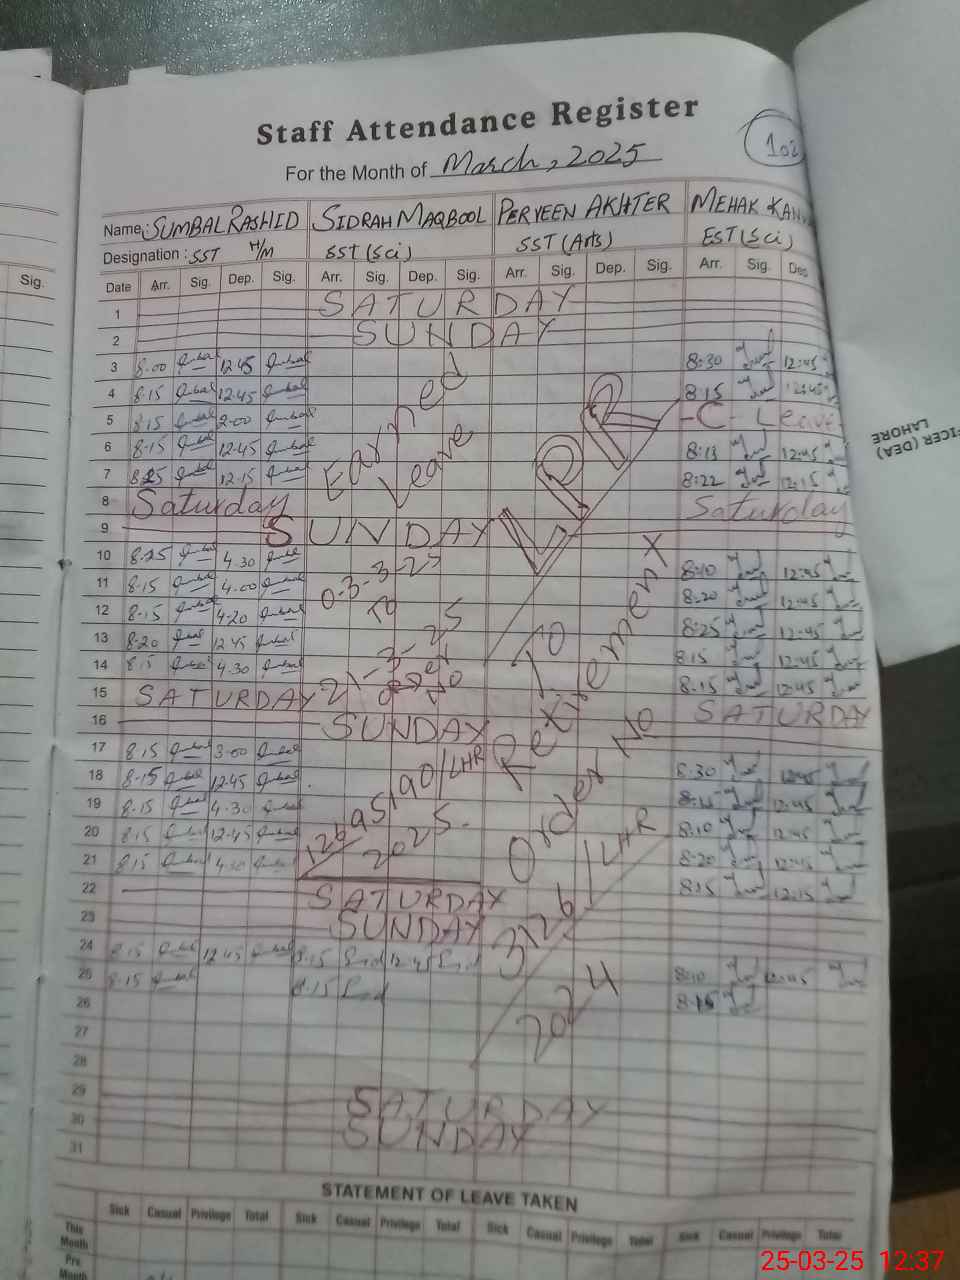 Staff Attendance Register
For the Month of March, 2025
102
Name: SUMBAL RASHID SIDRAH MAQBOOL PERVEEN AKHTER MEHAK
Designation: SST H/M SST (Sci) SST (Arts) EST (Sci)
Sig. Date Arr. Sig. Dep. Sig. Arr. Sig. Dep. Sig. Arr. Sig. Dep. Sig. Arr. Sig. Dep
1 SATURDAY
2 SUNDAY
3 8.00 12.45 8:30 12:45
4 8.15 12.45 8:15 12:45
5 8.15 2.00 -C- Leave
6 8.15 12.45 8:13 12:45
7 8.25 12.15 8:22 12:15
8 Saturday Saturday
9 SUNDAY
10 8.25 4.30 8:10 12:45
11 8.15 4.00 8:20 12:45
12 8.15 4.20 8:25 12:45
13 8.20 12.45 8:15 12:45
14 8.15 4.30 8:15 12:45
15 SATURDAY SATURDAY
16 SUNDAY
17 8.15 3.00 8:30 12:45
18 8.15 12.45 12:45
19 8.15 4.30 8:10 12:45
20 8.15 12.45 8:20 12:45
21 8.15 4.30 8:15 12:15
22 SATURDAY
23 SUNDAY
24 8.15 12.45 8.15 12.45 8:10 12:45
25 8.15 8.15 8:15
26
27
28
29 SATURDAY
30 SUNDAY
31
Earned
Leave
03-3-25
To
21-3-25
order
No
126 /LHR
2025.
LPR
To
Retirement
Order No
3126/LHR
2024
STATEMENT OF LEAVE TAKEN
Sick Casual Privilege Total Sick Casual Privilege Total Sick Casual Privilege Total Sick Casual Privilege Total
This Month
Pre. Month
FICER (DEA)
LAHORE
25-03-25 12:37